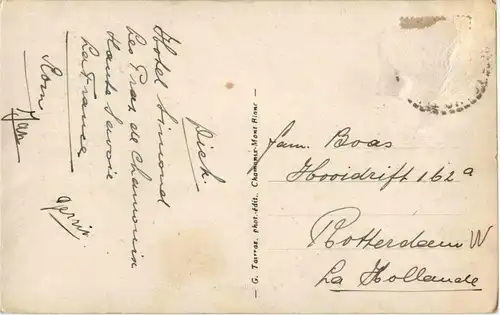 Dick.
Hotel Simond
Les Praz de Chamonix
Haute Savoie
La France
— G. Tairraz, phot.-édit. Chamonix-Mont Blanc —
fam. Boas
Hooidrift 162a
Rotterdam W
La Hollande